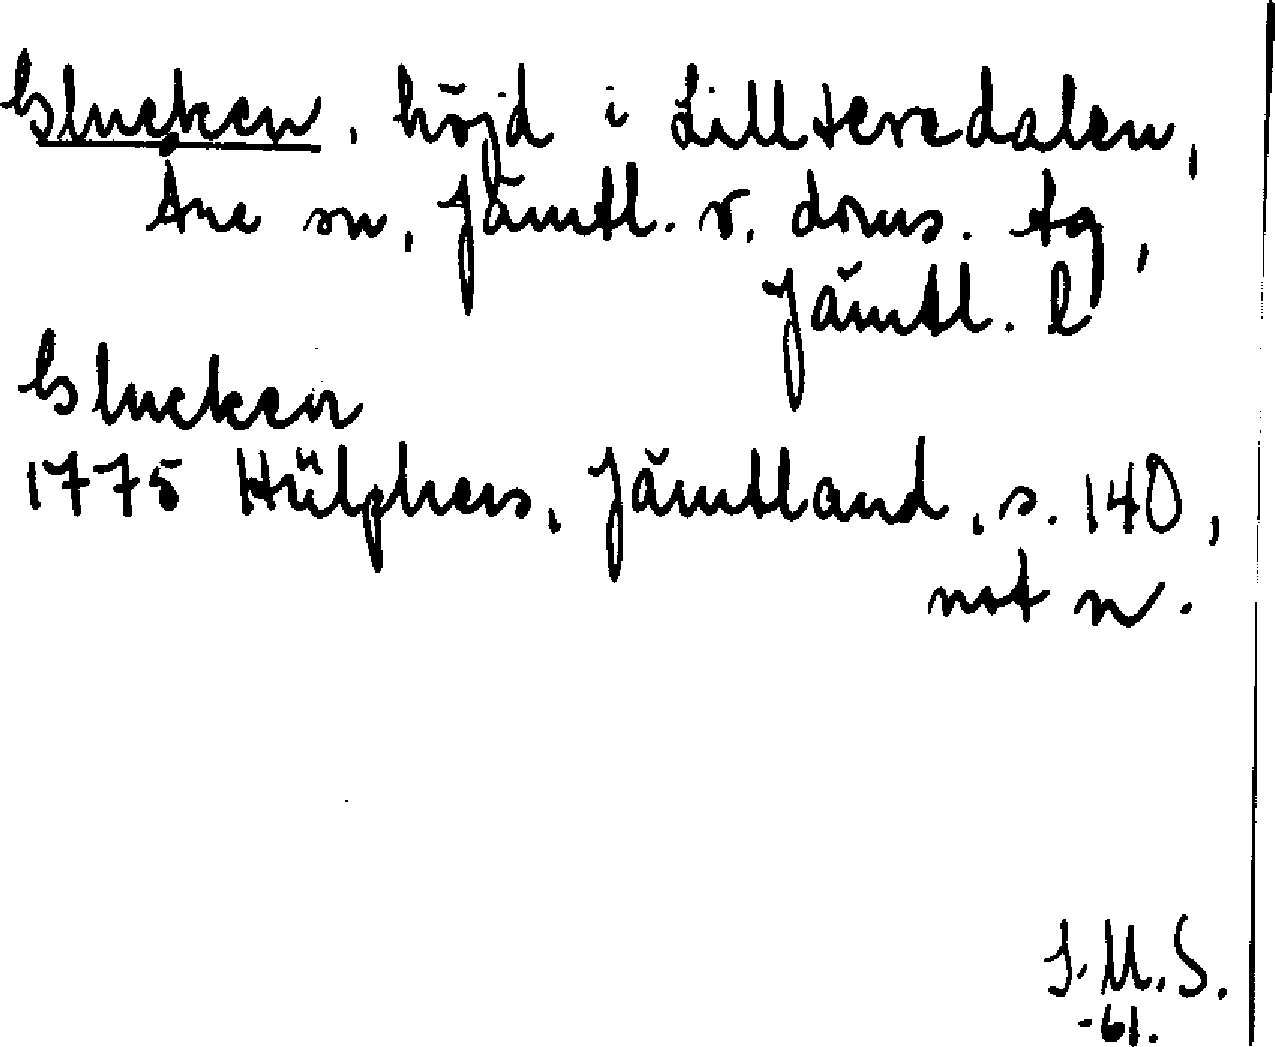 Glucken, höjd i Lillteredalen,
Åre sn, Jämtl. v. doms. tg,
Jämtl. l
Glucken
1775 Hülphers, Jämtland, s. 140,
not n.
I.M.S.
-61.